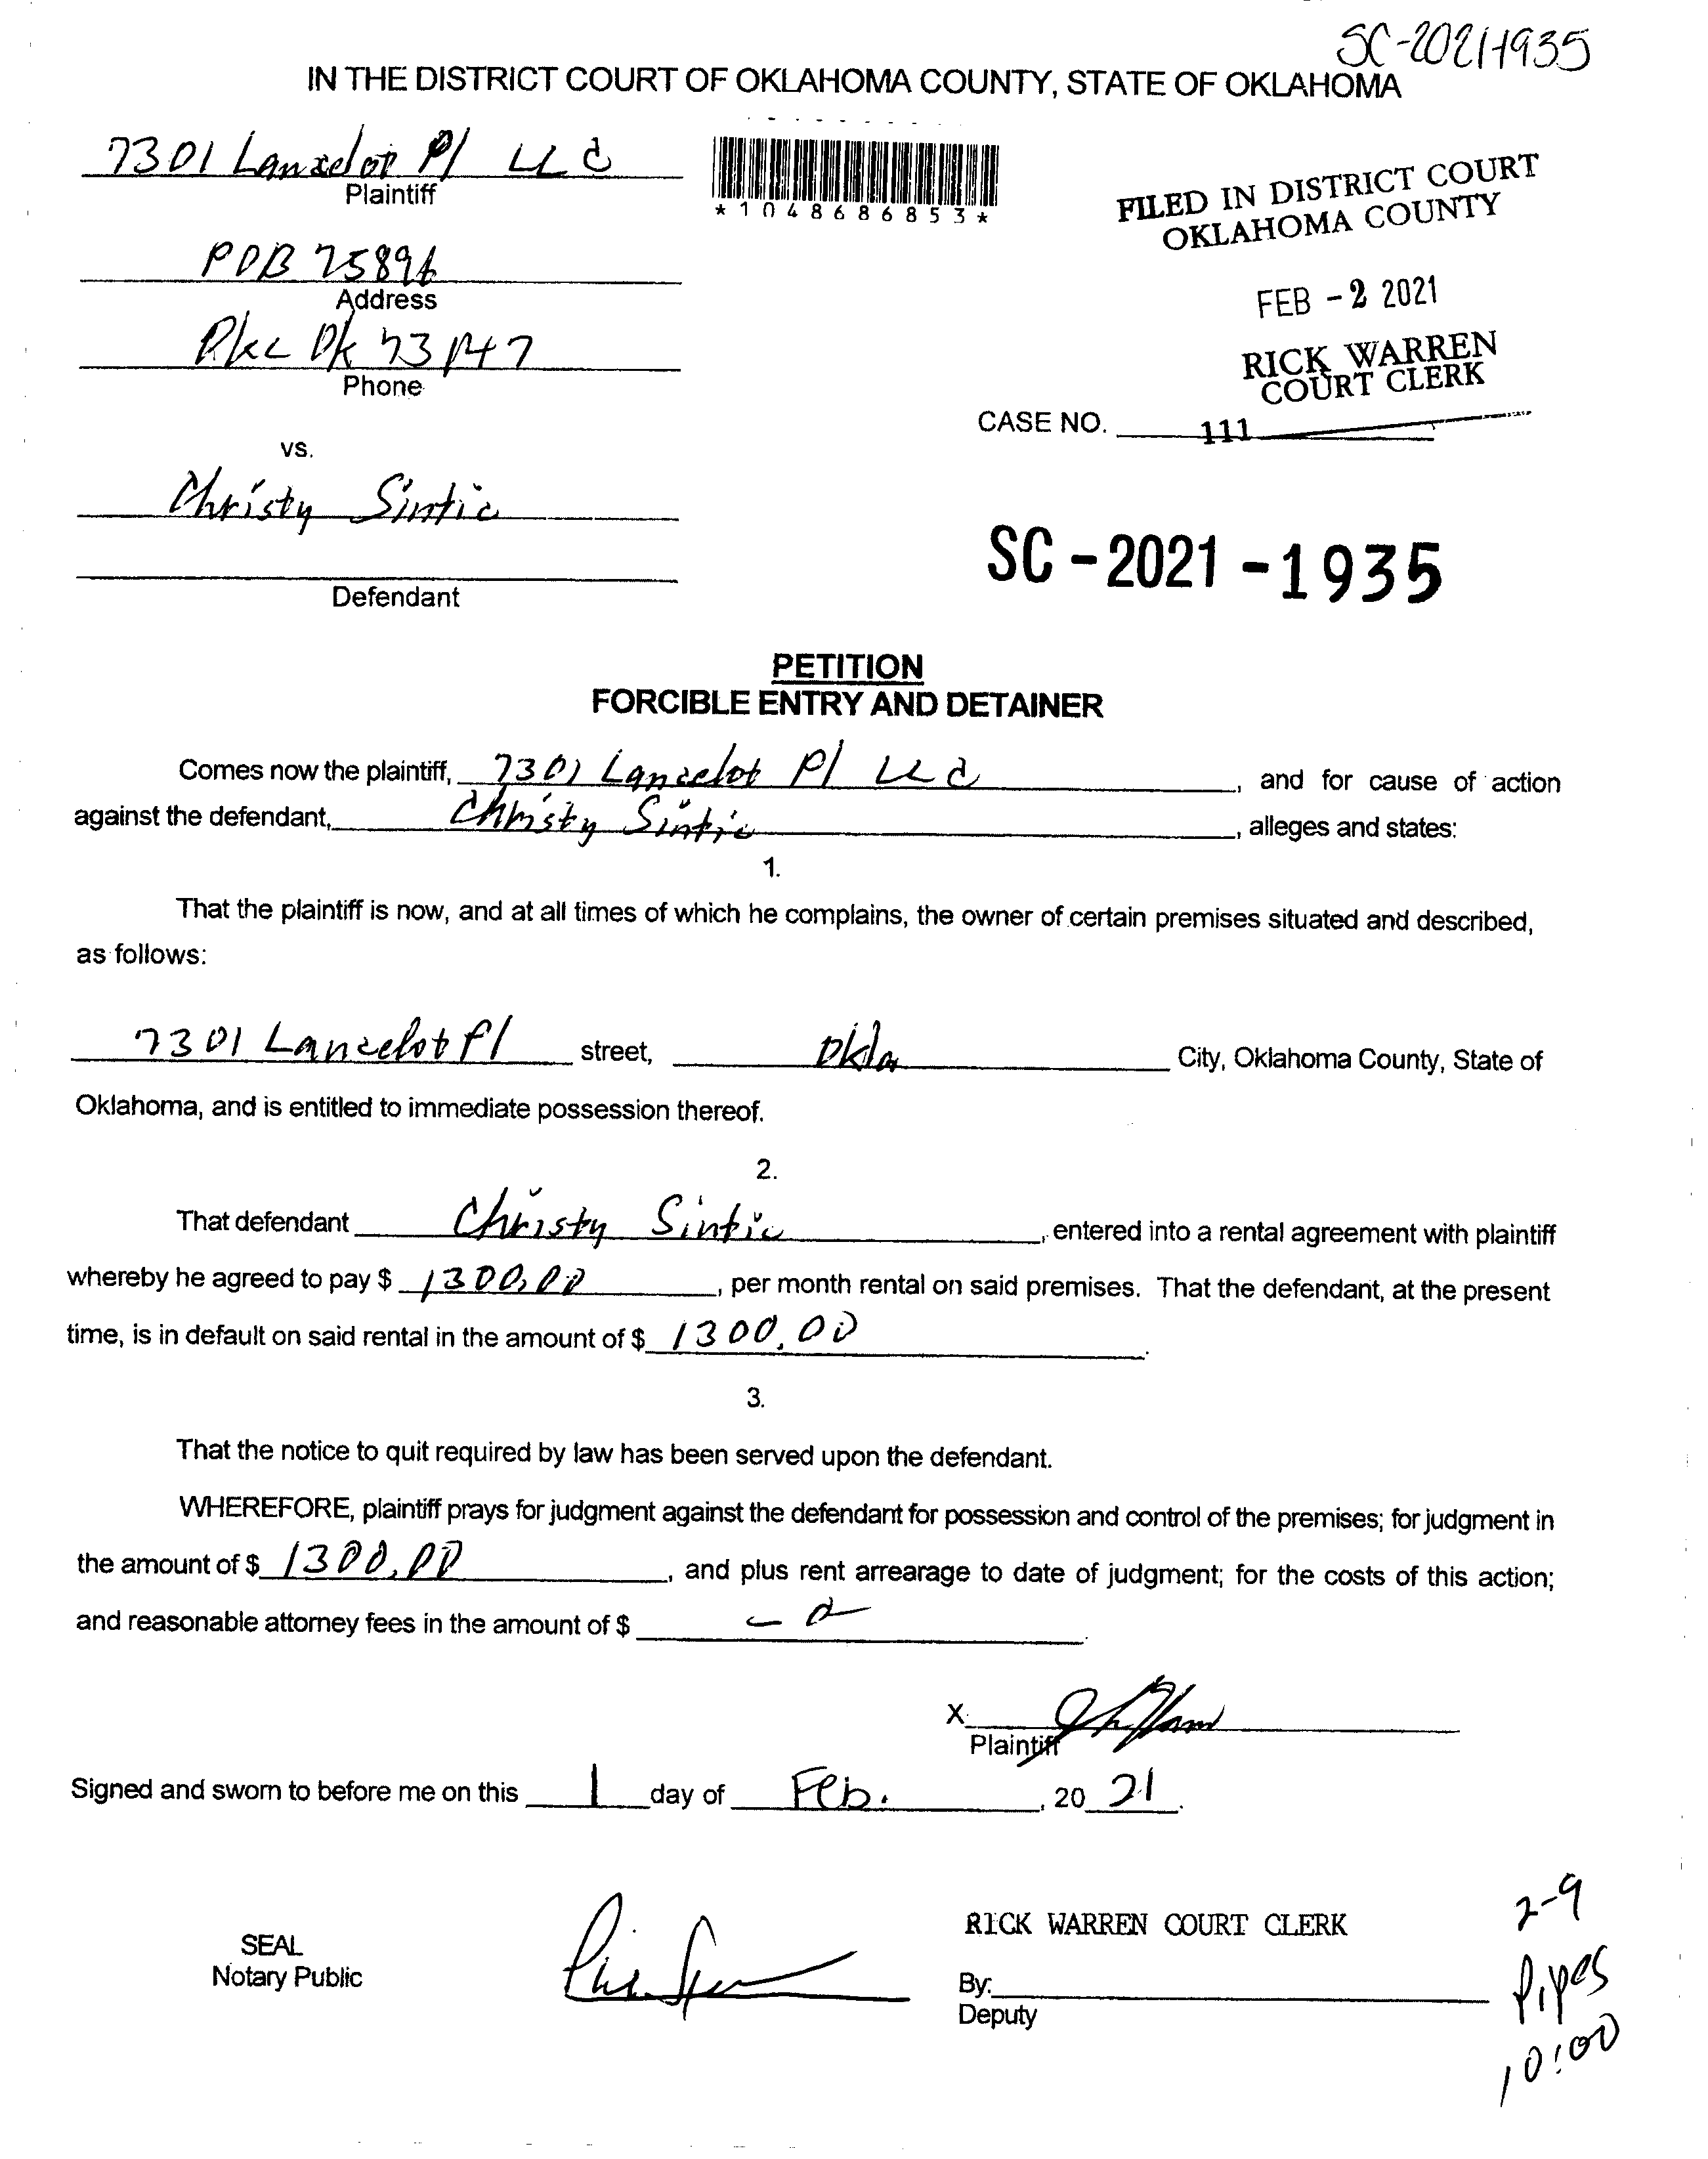 SC-2021-1935
IN THE DISTRICT COURT OF OKLAHOMA COUNTY, STATE OF OKLAHOMA
7301 Lancelot Pl LLC
Plaintiff
*1048686853*
FILED IN DISTRICT COURT
OKLAHOMA COUNTY
POB 75896
Address
FEB -2 2021
Okc Ok 73147
Phone
RICK WARREN
COURT CLERK
CASE NO. 111
vs.
Christy Sintic
SC-2021-1935
Defendant
PETITION
FORCIBLE ENTRY AND DETAINER
Comes now the plaintiff, 7301 Lancelot Pl LLC, and for cause of action
against the defendant, Christy Sintic, alleges and states:
1.
That the plaintiff is now, and at all times of which he complains, the owner of certain premises situated and described,
as follows:
7301 Lancelot Pl street, Okla City, Oklahoma County, State of
Oklahoma, and is entitled to immediate possession thereof.
2.
That defendant Christy Sintic, entered into a rental agreement with plaintiff
whereby he agreed to pay $ 1300.00, per month rental on said premises. That the defendant, at the present
time, is in default on said rental in the amount of $ 1300.00.
3.
That the notice to quit required by law has been served upon the defendant.
WHEREFORE, plaintiff prays for judgment against the defendant for possession and control of the premises; for judgment in
the amount of $ 1300.00, and plus rent arrearage to date of judgment; for the costs of this action;
and reasonable attorney fees in the amount of $
X
Plaintiff
Signed and sworn to before me on this 1 day of Feb., 20 21.
SEAL
Notary Public
RICK WARREN COURT CLERK
By:
Deputy
2-9
Pipes
10:00